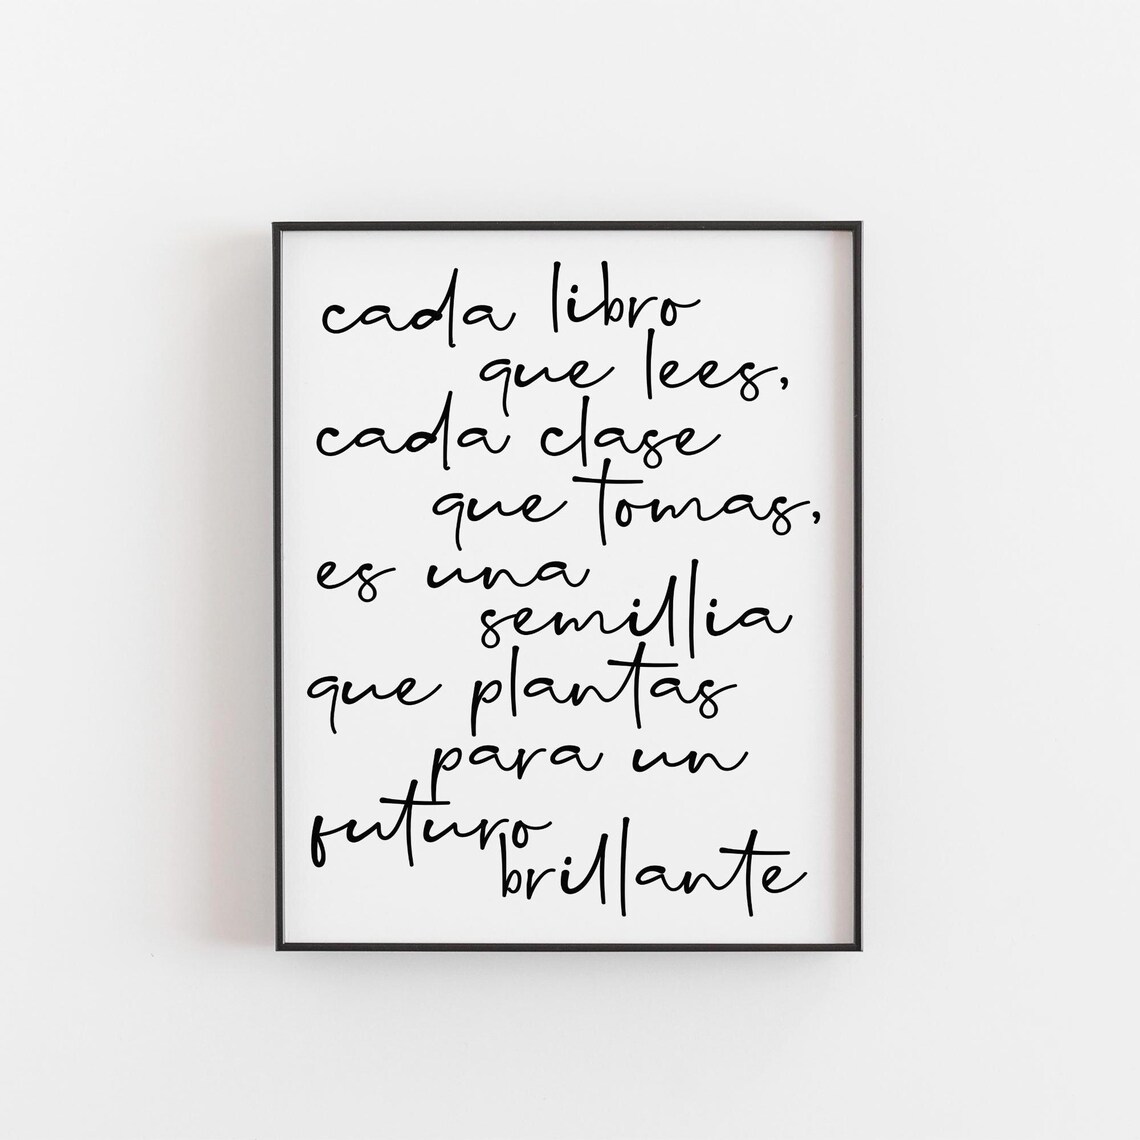 cada libro
que lees,
cada clase
que tomas,
es una
semillia
que plantas
para un
futuro
brillante